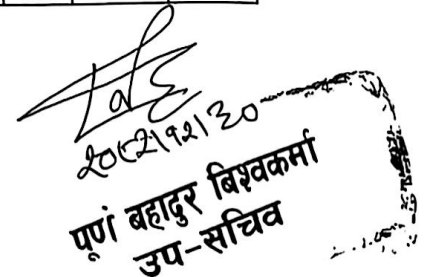 २०८२।१२।३०
पूर्ण बहादुर बिश्वकर्मा
उप-सचिव